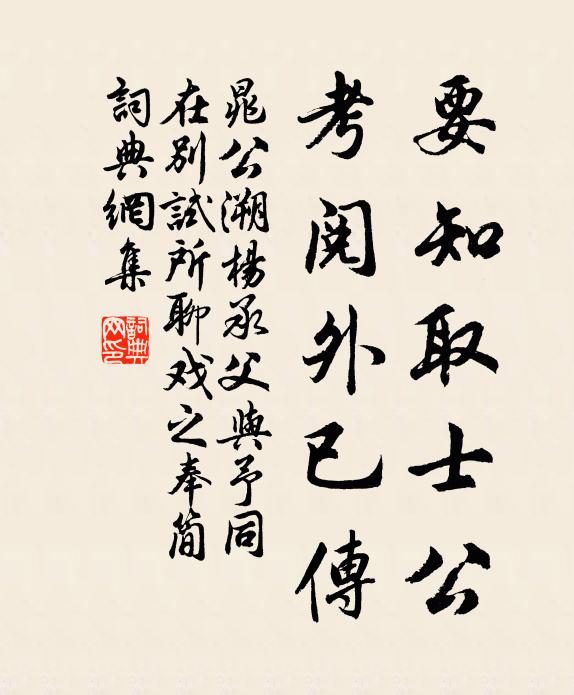 要知取士公
考閱外已傳
晁公溯楊承父與予同
在別試所聊戏之奉简
詞典網集
詞典网印